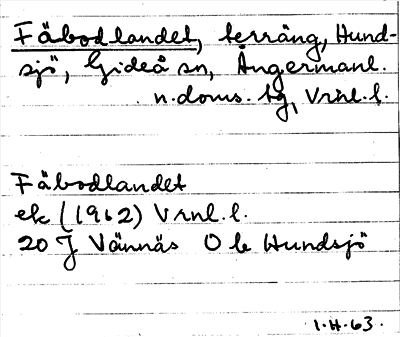 Fäbodlandet, terräng, Hund-
sjö, Gideå sn, Ångermanl.
n. doms. tg, Vrnl. l.
Fäbodlandet
ek (1962) Vrnl. l.
20 J Vännäs O le Hundsjö
1.H.63.